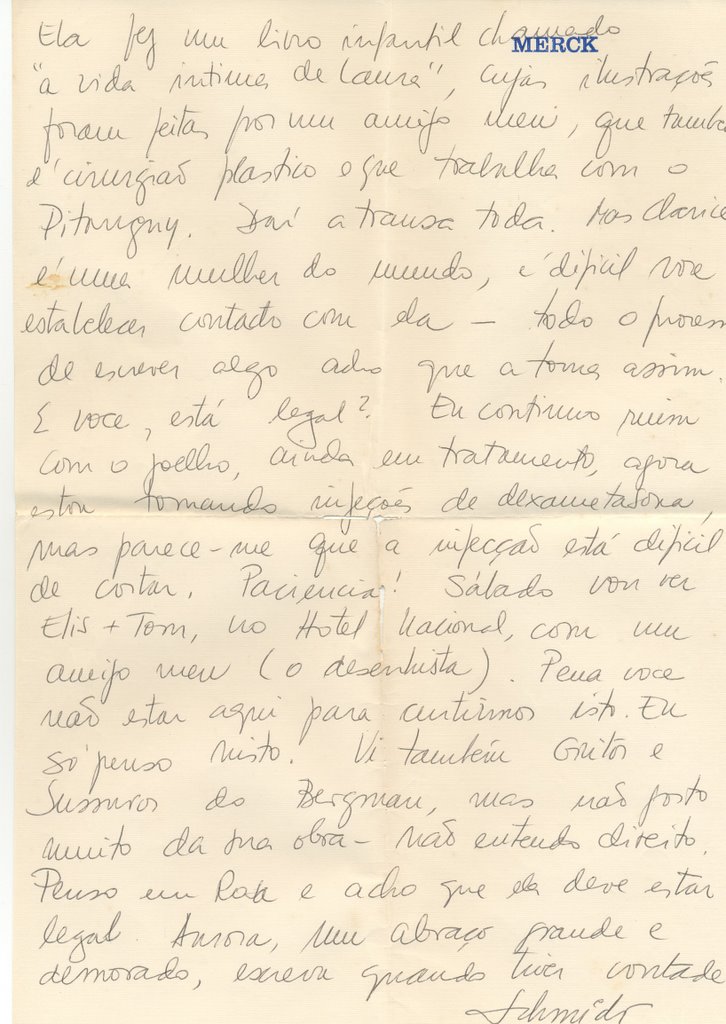 MERCK
Ela fez um livro infantil chamado
"a vida íntima de Laura", cujas ilustrações
foram feitas por um amigo meu, que també
é cirurgião plástico e que trabalha com o
Pitanguy. Daí a transa toda. Mas Clarice
é uma mulher do mundo, é difícil voce
estabelecer contato com ela — todo o process
de escrever algo acho que a torna assim.
E voce, está legal? Eu continuo ruim
com o joelho, ainda em tratamento, agora
estou tomando injeções de dexametasona,
mas parece-me que a injecção está difícil
de cortar. Paciencia! Sábado vou ver
Elis + Tom, no Hotel Nacional, com um
amigo meu (o desenhista). Pena voce
não estar aqui para curtirmos isto. Eu
só penso nisto. Vi também Gritos e
Sussuros do Bergman, mas não gosto
muito da sua obra — não entendo direito.
Penso em e acho que ela deve estar
legal. Aurora, um abraço grande e
demorado, escreva quando tiver vontade
Schmidt